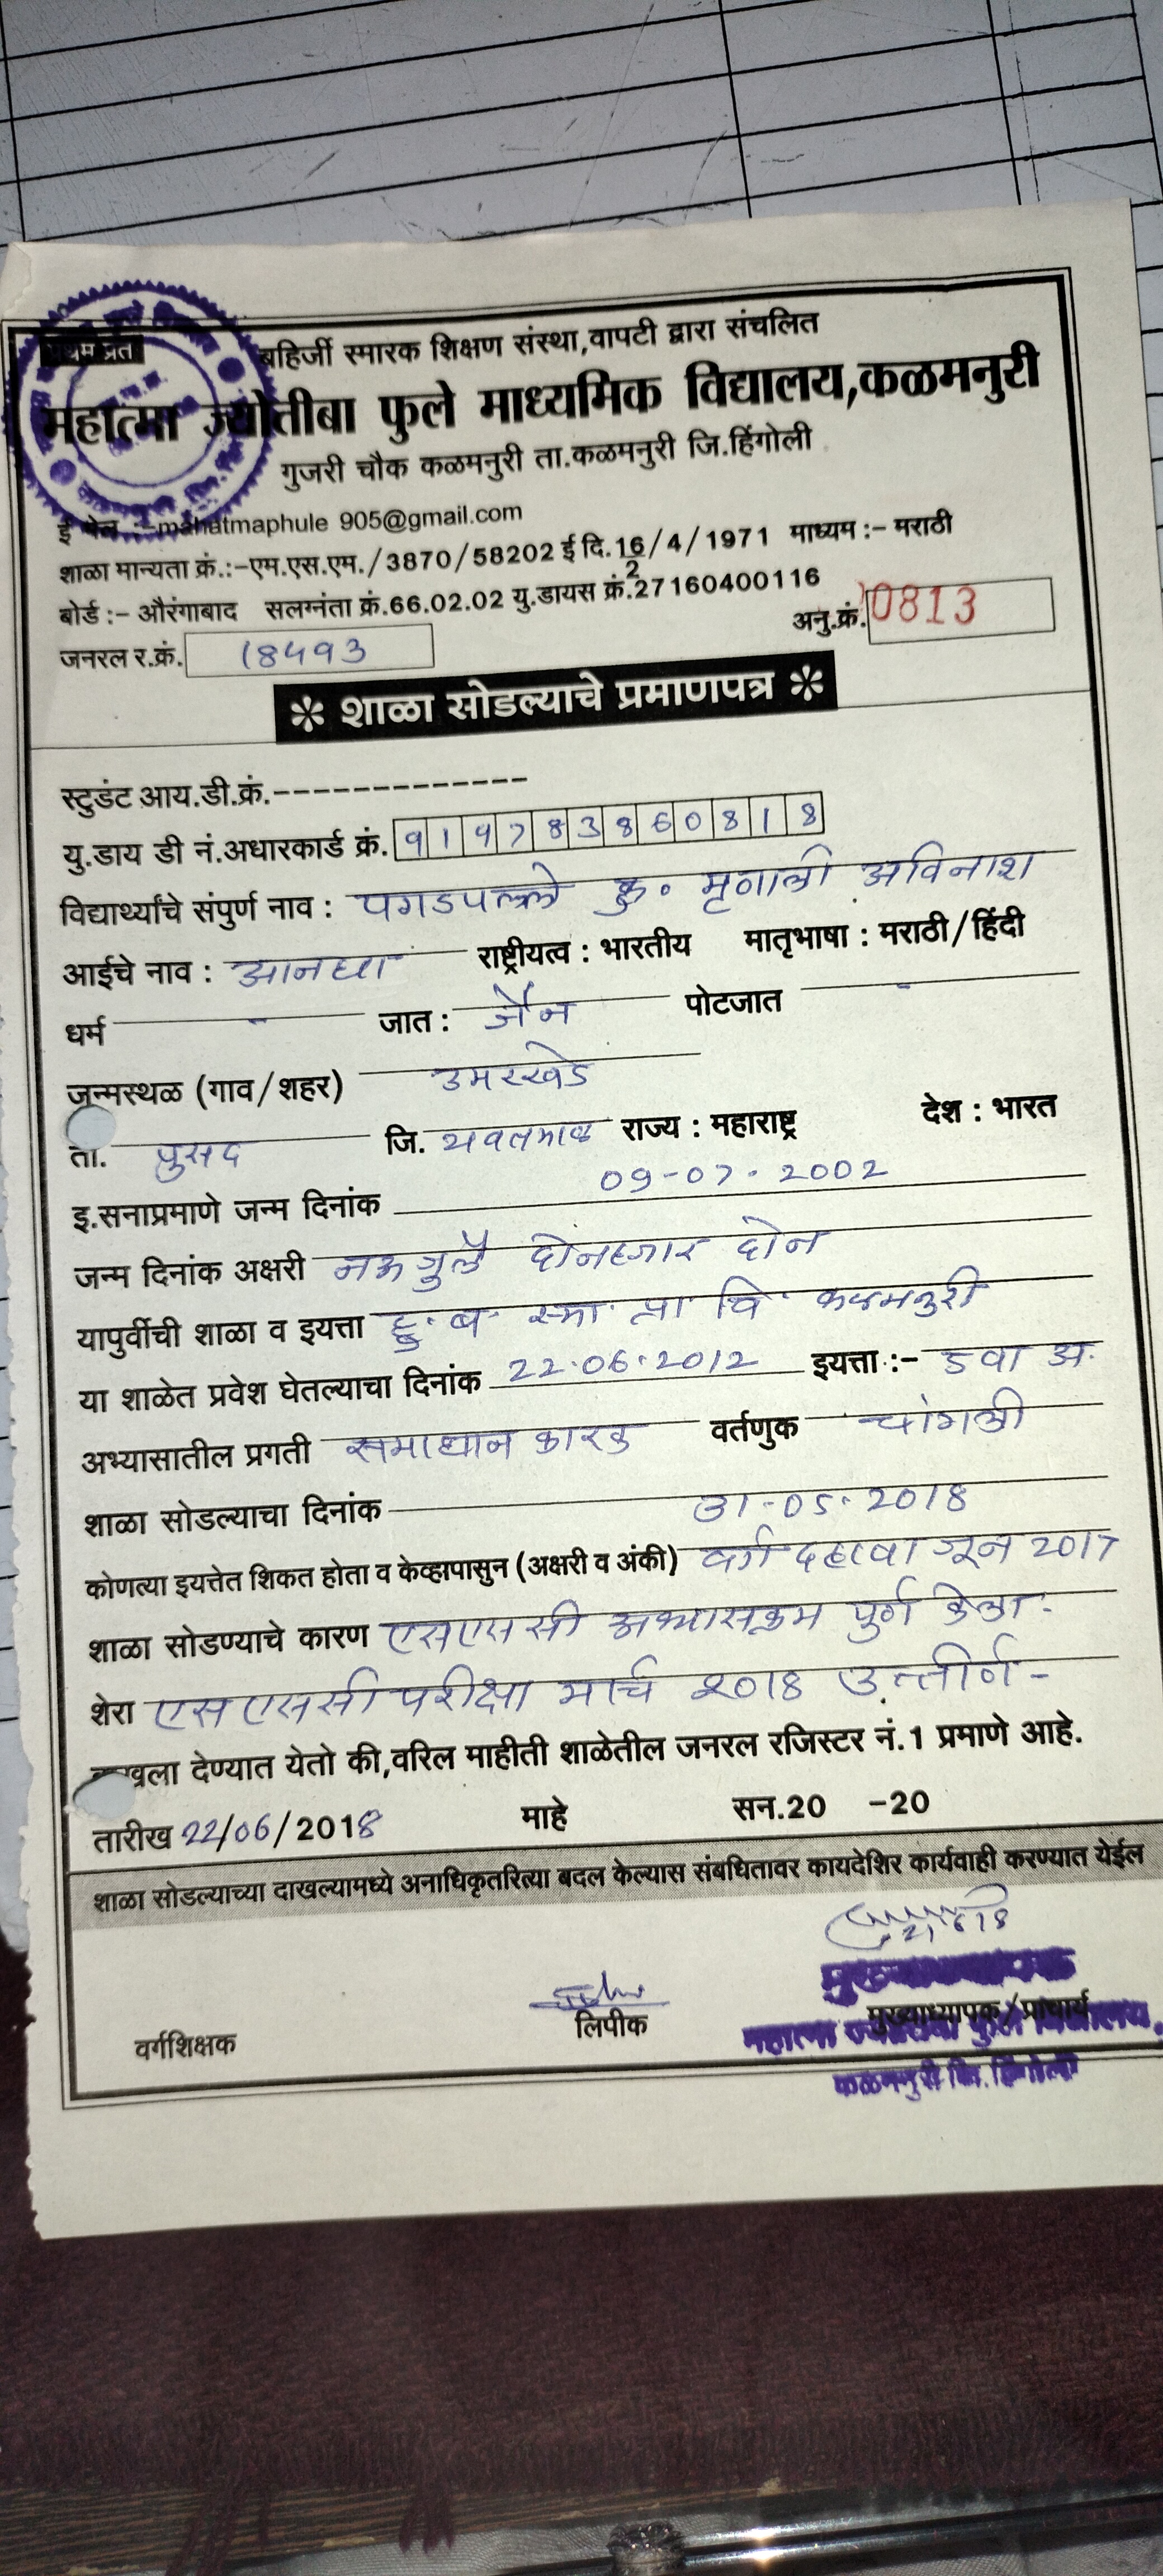 प्रथम प्रत
बहिर्जी स्मारक शिक्षण संस्था,वापटी द्वारा संचलित
महात्मा ज्योतीबा फुले माध्यमिक विद्यालय,कळमनुरी
गुजरी चौक कळमनुरी ता.कळमनुरी जि.हिंगोली
ई मेल :-mahatmaphule 905@gmail.com
शाळा मान्यता क्रं.:-एम.एस.एम./3870/58202 ई दि.16/4/1971 माध्यम :- मराठी
2
बोर्ड :- औरंगाबाद सलग्नंता क्रं.66.02.02 यु.डायस क्रं.27160400116
जनरल र.क्रं. 18493 अनु.क्रं. 0813
* शाळा सोडल्याचे प्रमाणपत्र *
स्टुडंट आय.डी.क्रं.-------------
यु.डाय डी नं.अधारकार्ड क्रं.
विद्यार्थ्यांचे संपुर्ण नाव : पगडपल्ले कु. मृणाली अविनाश
आईचे नाव : आनघा राष्ट्रीयत्व : भारतीय मातृभाषा : मराठी/हिंदी
धर्म - जात : जैन पोटजात -
जन्मस्थळ (गाव/शहर) उमरखेड
ता. पुसद जि. यवतमाळ राज्य : महाराष्ट्र देश : भारत
इ.सनाप्रमाणे जन्म दिनांक 09-07-2002
जन्म दिनांक अक्षरी नऊ जुलै दोनहजार दोन
यापुर्वीची शाळा व इयत्ता हु. ब. स्मा. प्रा वि. कळमनुरी
या शाळेत प्रवेश घेतल्याचा दिनांक 22.06.2012 इयत्ता :- 5 वा अ.
अभ्यासातील प्रगती समाधान कारक वर्तणुक चांगली
शाळा सोडल्याचा दिनांक 31-05-2018
कोणत्या इयत्तेत शिकत होता व केव्हापासुन (अक्षरी व अंकी) वर्ग दहावा जून 2017
शाळा सोडण्याचे कारण एसएससी अभ्यासक्रम पुर्ण केला.
शेरा एसएससी परीक्षा मार्च 2018 उत्तीर्ण-
दाखला देण्यात येतो की,वरिल माहीती शाळेतील जनरल रजिस्टर नं.1 प्रमाणे आहे.
तारीख 22/06/2018 माहे सन.20 -20
शाळा सोडल्याच्या दाखल्यामध्ये अनाधिकृतरित्या बदल केल्यास संबधितावर कायदेशिर कार्यवाही करण्यात येईल
वर्गशिक्षक लिपीक मुख्याध्यापक/प्राचार्य
मुख्याध्यापक
महात्मा ज्योतीबा फुले विद्यालय,
कळमनुरी जि. हिंगोली